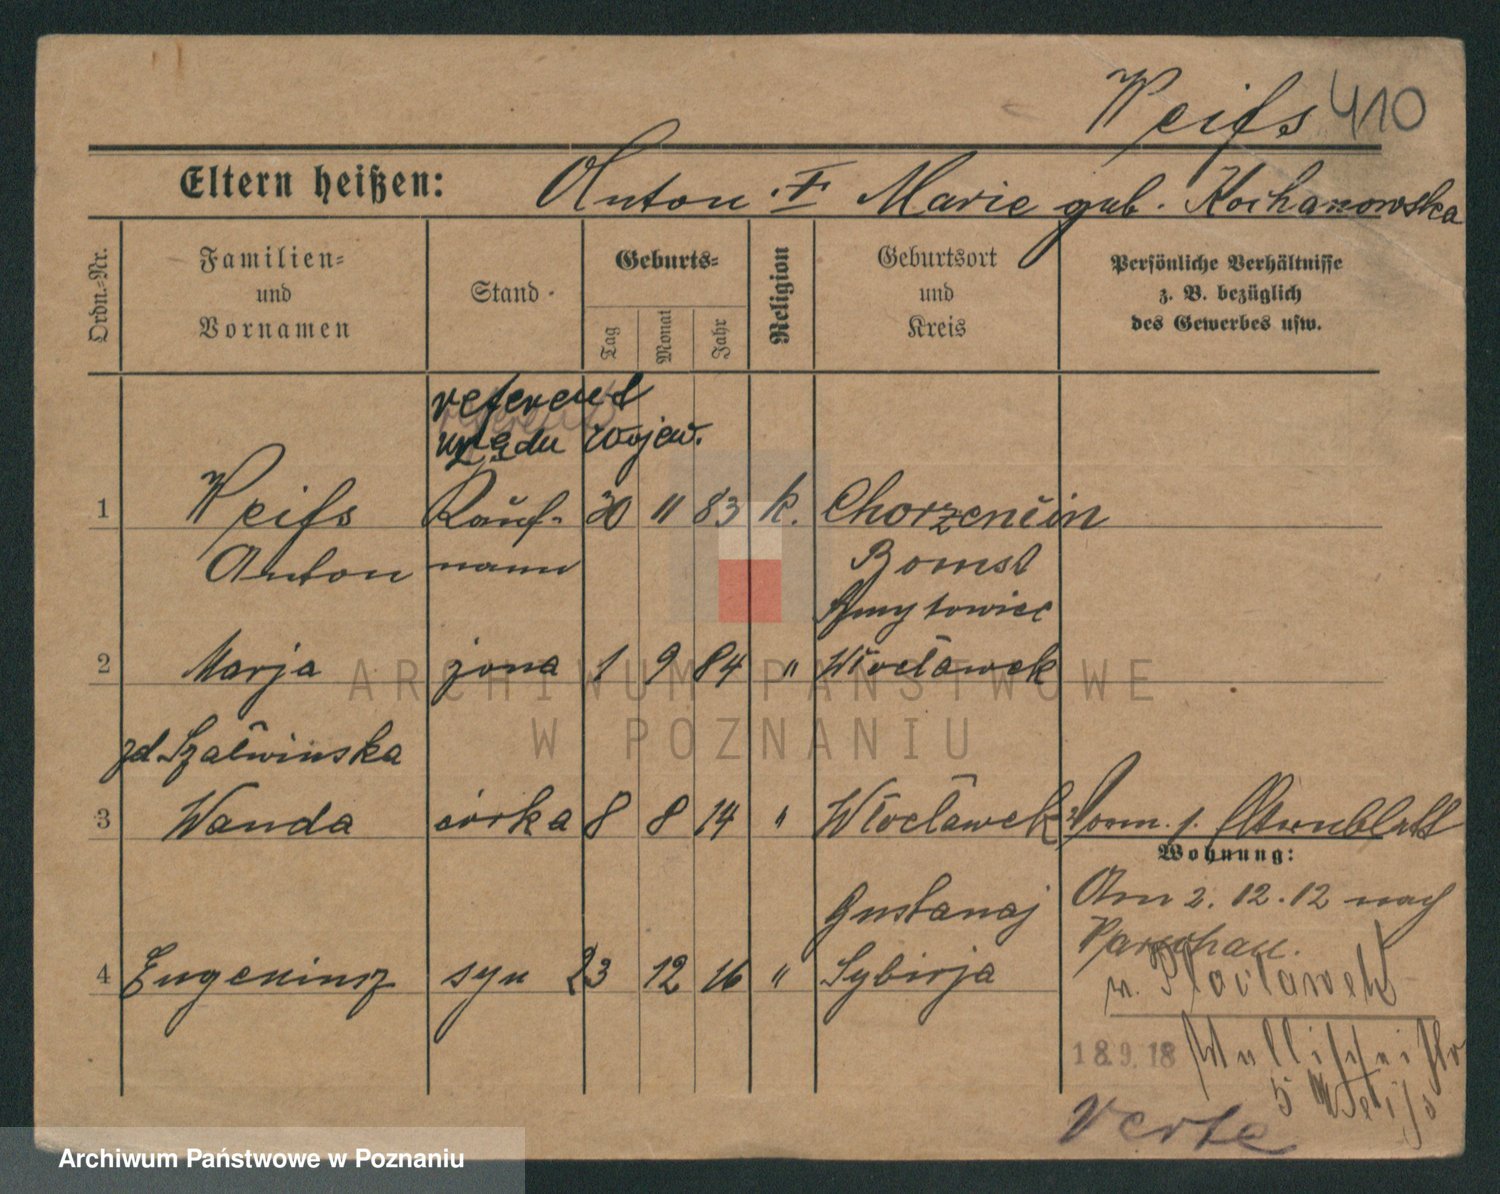 Weiſs 410
Eltern heißen: Anton † Marie geb. Kochanowska
Ordn.-Nr.
Familien-
und
Vornamen
Stand
Geburts-
Tag
Monat
Jahr
Religion
Geburtsort
und
Kreis
Persönliche Verhältnisse
z. B. bezüglich
des Gewerbes usw.
referent
urzędu Wojew.
1 Weiſs Kauf- 30 11 83 k. Chorzemin
Anton mann Bomst
2 Marja żona 1 9 84 " Włocławek
zd. Szalwinska
3 Wanda córka 8 8 14 " Włocławek
Wohnung:
Am 2. 12. 12 nach
Warschau.
4 Eugeniusz syn 23 12 16 " Sybirja
n. Wloclawek
18.9.18 Wallischei
5 Weiſs
Verte
ARCHIWUM PAŃSTWOWE
W POZNANIU
Archiwum Państwowe w Poznaniu